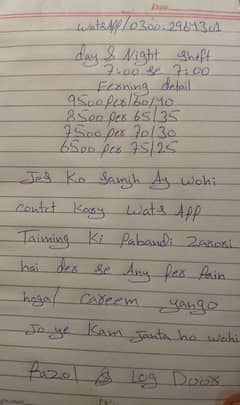 WatsApp/0300:2961301
day & Night shift
7:00 se 7:00
Ferning detail
9500 per/60/40
8500 per 65/35
7500 per 70/30
6500 per 75/25
Jes Ko Samjh Ay wohi
contct Kary Wats App
Taiming Ki Pabandi Zarori
hai der se Any per Fain
hoga/ Careem yango
Jo ye Kam Janta ho wohi
Fazol Log Door